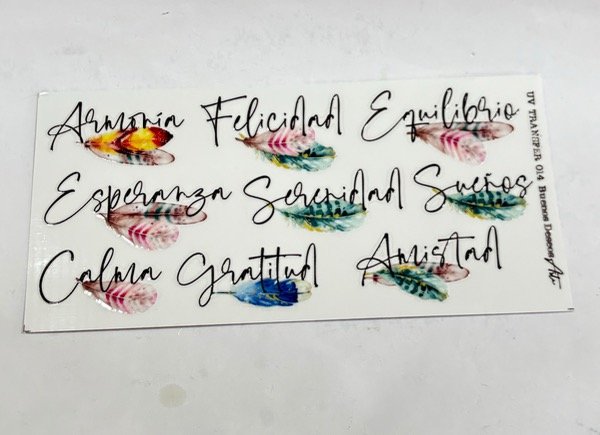 Armonía Felicidad Equilibrio
Esperanza Serenidad Sueños
Calma Gratitud Amistad
UV TRANSFER 014 Buenos Deseos